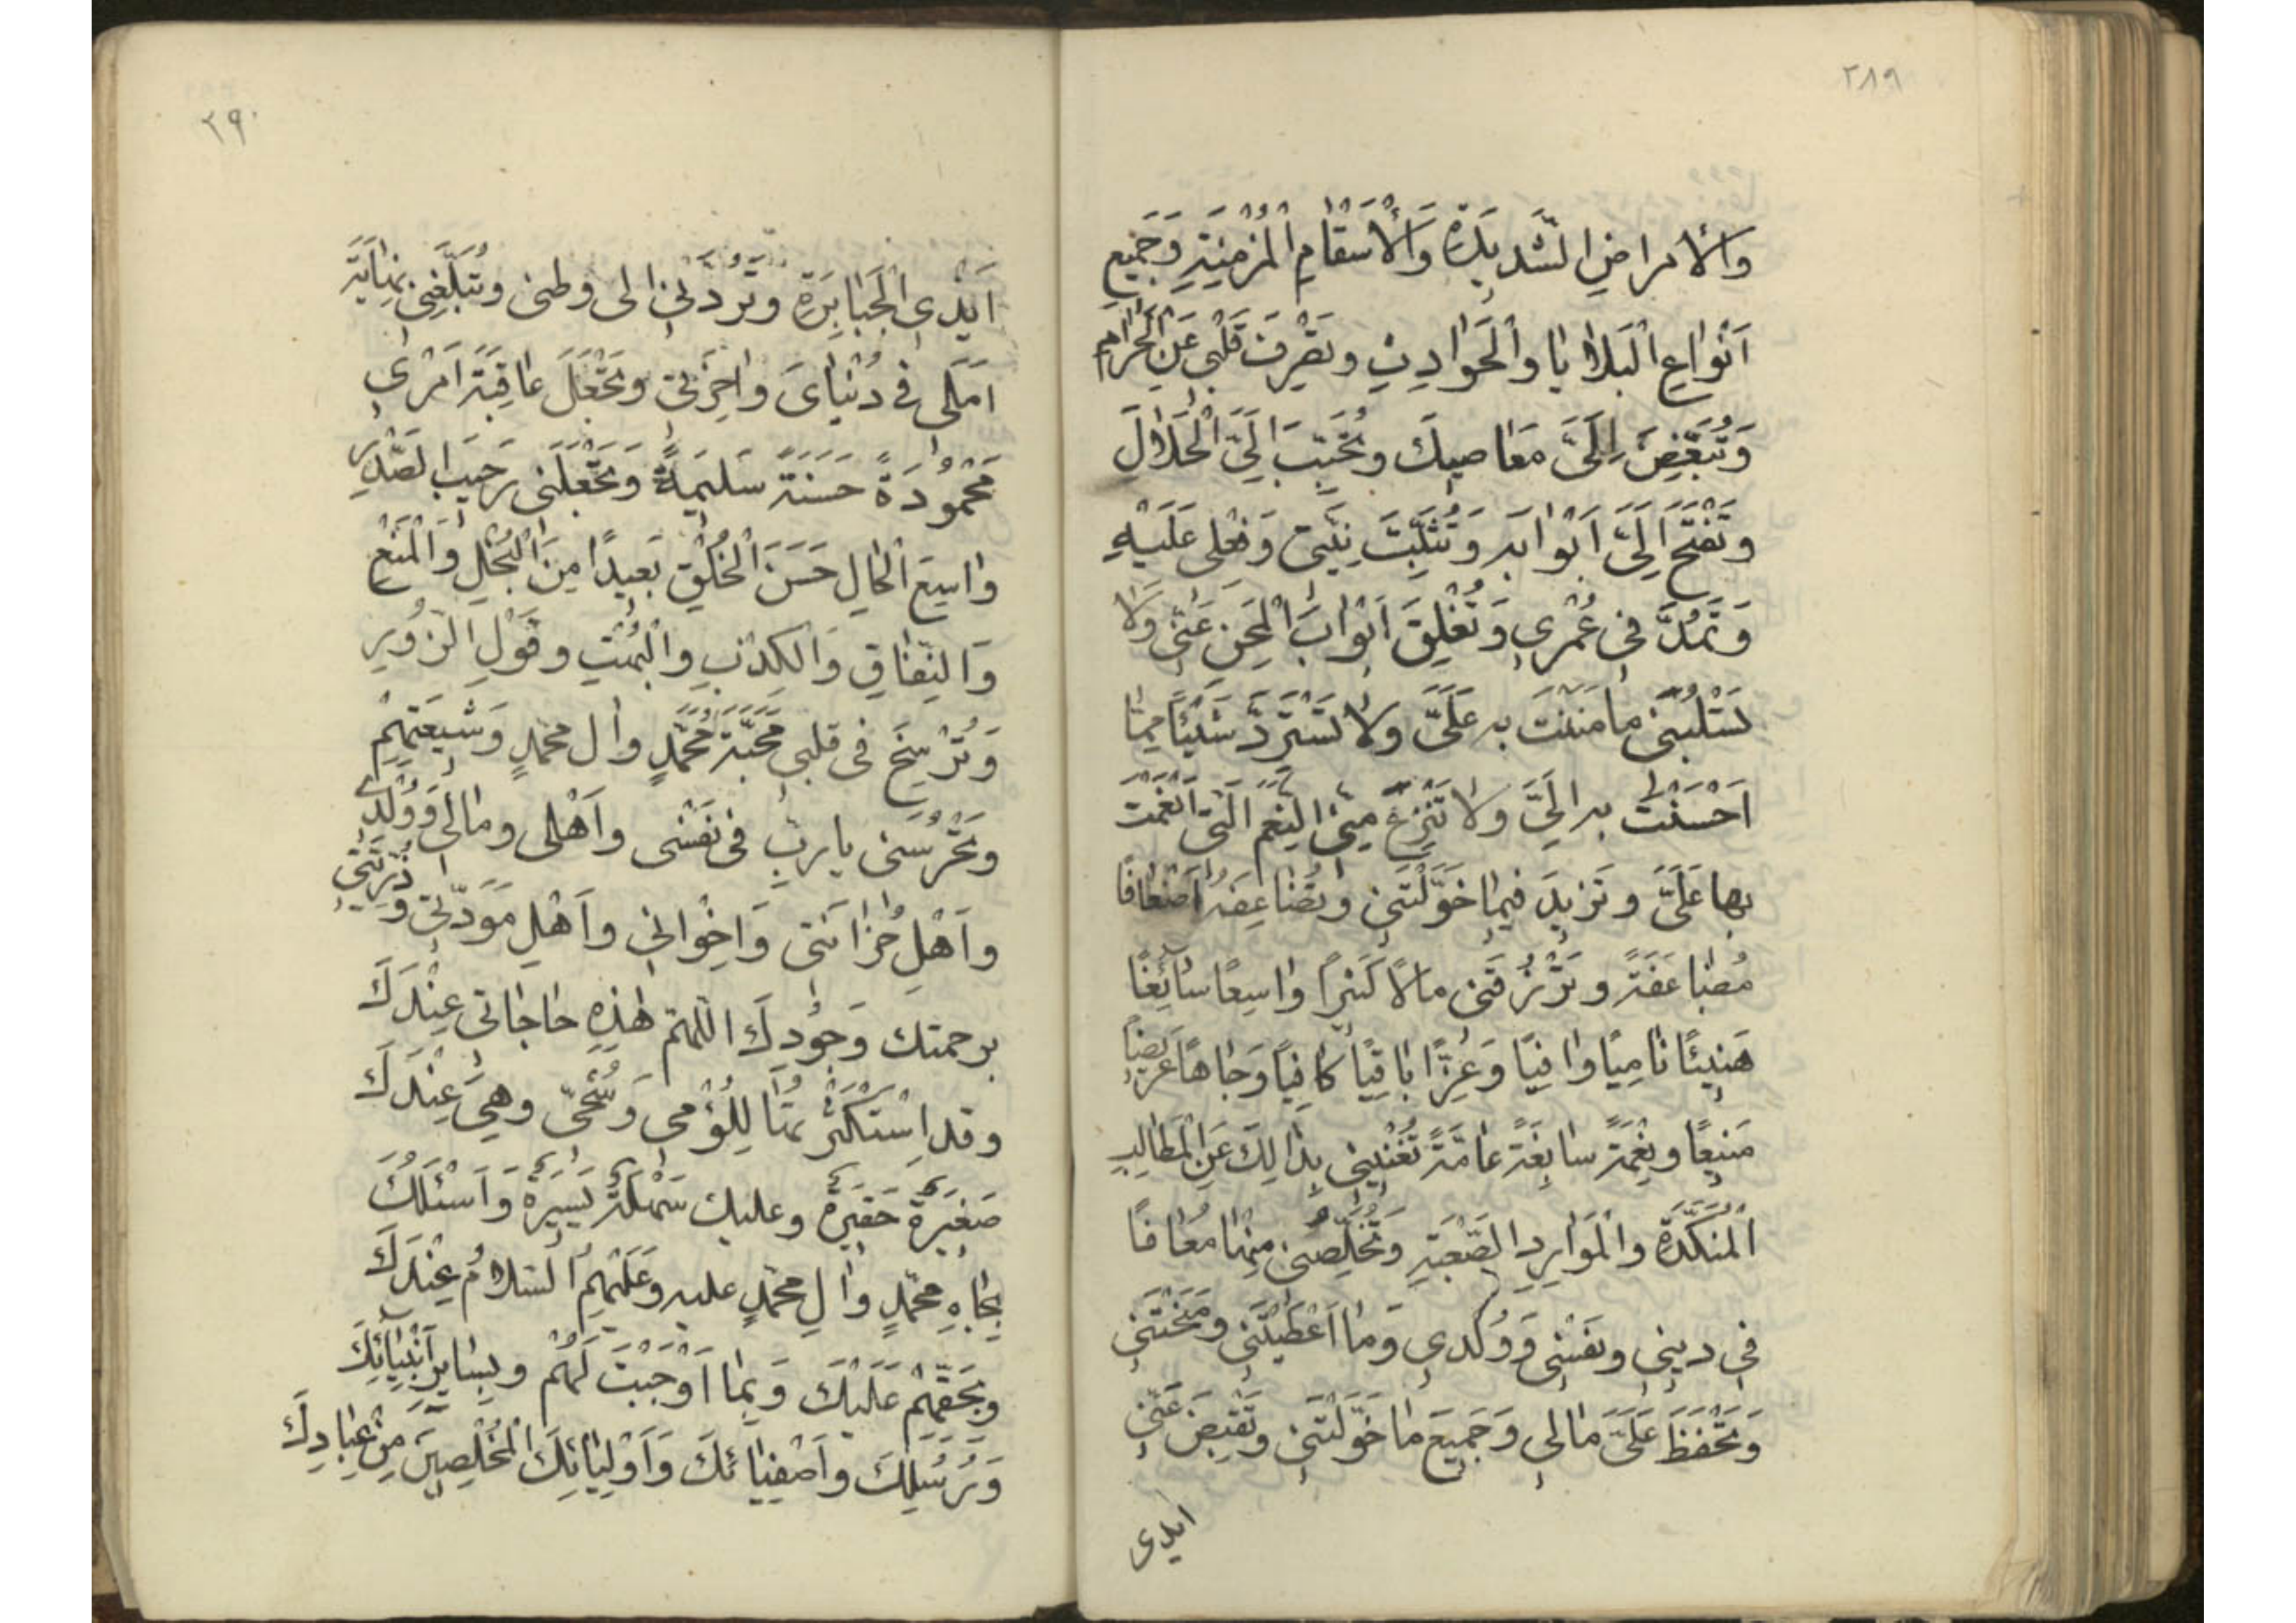 ٢٨٩
وَالْأَمْرَاضِ الشَّدِيدَةِ وَالْأَسْقَامِ الْمُزْمِنَةِ وَجَمِيعِ
أَنْوَاعِ الْبَلَايَا وَالْحَوَادِثِ وَتَصْرِفَ قَلْبِي عَنِ الْحَرَامِ
وَتُبَغِّضَ إِلَيَّ مَعَاصِيكَ وَتُحَبِّبَ إِلَيَّ الْحَلَالَ
وَتَفْتَحَ إِلَيَّ أَبْوَابَهُ وَتُثَبِّتَ نِيَّتِي وَفِعْلِي عَلَيْهِ
وَتَمُدَّ فِي عُمْرِي وَتُغْلِقَ أَبْوَابَ الْمِحَنِ عَنِّي وَلَا
تَسْلُبَنِي مَا مَنَنْتَ بِهِ عَلَيَّ وَلَا تَسْتَرِدَّ شَيْئًا مِمَّا
أَحْسَنْتَ بِهِ إِلَيَّ وَلَا تَنْزِعَ مِنِّي النِّعَمَ الَّتِي أَنْعَمْتَ
بِهَا عَلَيَّ وَتَزِيدَ فِيمَا خَوَّلْتَنِي وَتُضَاعِفَهُ أَضْعَافًا
مُضَاعَفَةً وَتَرْزُقَنِي مَالًا كَثِيرًا وَاسِعًا سَائِغًا
هَنِيئًا نَامِيًا وَافِيًا وَعِزًّا بَاقِيًا كَافِيًا وَجَاهًا عَرِيضًا
مَنِيعًا وَنِعْمَةً سَابِغَةً عَامَّةً تُغْنِيَنِي بِذَالِكَ عَنِ الْمَطَالِبِ
الْمُنَكَّدَةِ وَالْمَوَارِدِ الصَّعْبَةِ وَتُخَلِّصَنِي مِنْهَا مُعَافًا
فِي دِينِي وَنَفْسِي وَوُلْدِي وَمَا أَعْطَيْتَنِي وَمَنَحْتَنِي
وَتَحْفَظَ عَلَيَّ مَالِي وَجَمِيعَ مَا خَوَّلْتَنِي وَتَقْبِضَ عَنِّي
ايدى
٢٩٠
أَيْدِيَ الْجَبَابِرَةِ وَتَرُدَّنِي إِلَى وَطَنِي وَتُبَلِّغَنِي نِهَايَةَ
أَمَلِي فِي دُنْيَايَ وَآخِرَتِي وَتَجْعَلَ عَاقِبَةَ أَمْرِي
مَحْمُودَةً حَسَنَةً سَلِيمَةً وَتَجْعَلَنِي رَحِيبَ الصَّدْرِ
وَاسِعَ الْحَالِ حَسَنَ الْخُلْقِ بَعِيدًا مِنَ الْبُخْلِ وَالْمَنْعِ
وَالنِّفَاقِ وَالْكِذْبِ وَالْبُهْتِ وَقَوْلِ الزُّورِ
وَتُرْسِخَ فِي قَلْبِي مَحَبَّةَ مُحَمَّدٍ وَآلِ مُحَمَّدٍ وَشِيعَتِهِمْ
وَتَحْرُسَنِي يَا رَبِّ فِي نَفْسِي وَأَهْلِي وَمَالِي وَوُلْدِي
وَأَهْلِ حُزَانَتِي وَإِخْوَانِي وَأَهْلِ مَوَدَّتِي وَذُرِّيَّتِي
بِرَحْمَتِكَ وَجُودِكَ اللَّهُمَّ هَذِهِ حَاجَاتِي عِنْدَكَ
وَقَدِ اسْتَكْثَرْتُهَا لِلُؤْمِي وَشُحِّي وَهِيَ عِنْدَكَ
صَغِيرَةٌ حَقِيرَةٌ وَعَلَيْكَ سَهْلَةٌ يَسِيرَةٌ وَأَسْئَلُكَ
بِجَاهِ مُحَمَّدٍ وَآلِ مُحَمَّدٍ عَلَيْهِ وَعَلَيْهِمُ السَّلَامُ عِنْدَكَ
وَبِحَقِّهِمْ عَلَيْكَ وَبِمَا أَوْجَبْتَ لَهُمْ وَبِسَايِرِ أَنْبِيَائِكَ
وَرُسُلِكَ وَأَصْفِيَائِكَ وَأَوْلِيَائِكَ الْمُخْلِصِينَ مِنْ عِبَادِكَ